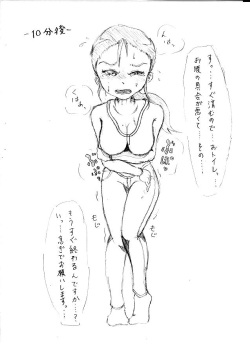 ~10分後~
んはぁ
くはぁ
すっ…すぐ済むので…おトイレ…
お腹の具合が悪くて…その…
もじ
もじ
もうすぐ終わるんですか…?
いっ…急ぎでお願いします…